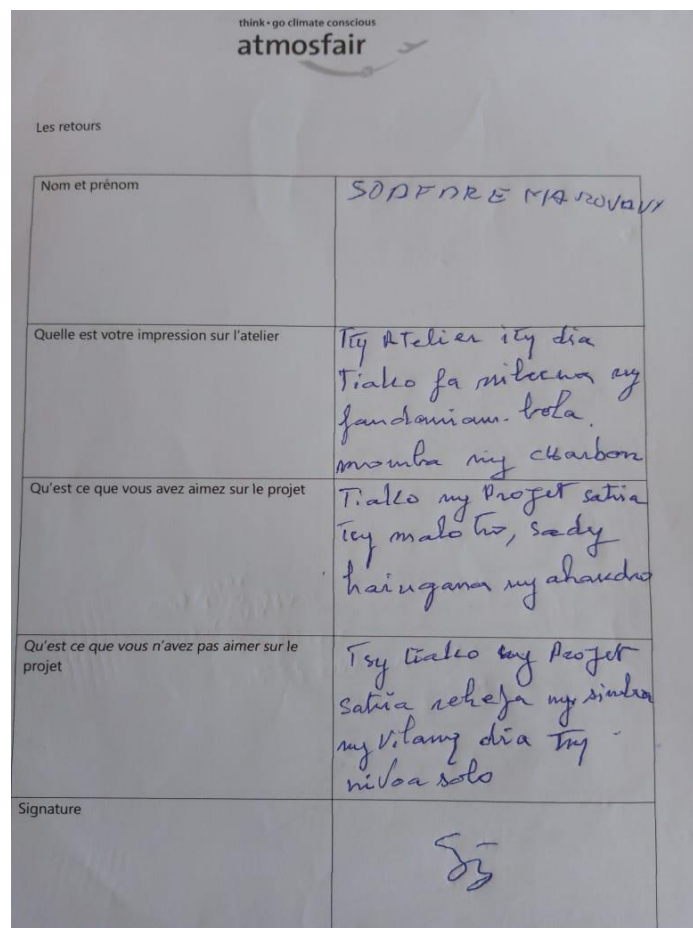 think • go climate conscious
atmosfair
Les retours
Nom et prénom
SODFDRE MAROVAVY
Quelle est votre impression sur l'atelier
Tsy Atelier ity dia
Tiako fa miteena ny
fandaniam-bola.
momba ny charbon
Qu'est ce que vous avez aimez sur le projet
Tiako ny Projet satria
tsy maloto, sady
haingana ny ahandro
Qu'est ce que vous n'avez pas aimer sur le
projet
Tsy tiako ny Projet
satria rehefa ny sindra
ny Vilany dia Tsy
nivoa solo
Signature